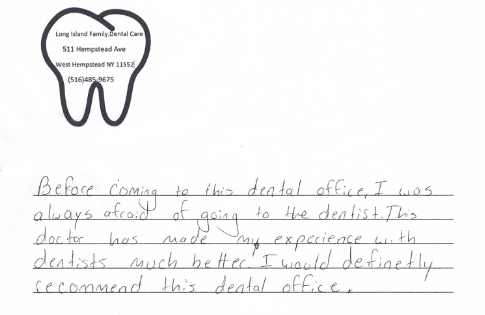 Long Island Family Dental Care
511 Hempstead Ave
West Hempstead NY 11552
(516)485-9675
Before coming to this dental office, I was
always afraid of going to the dentist. This
doctor has made my experience with
dentists much better. I would definetly
recommend this dental office.